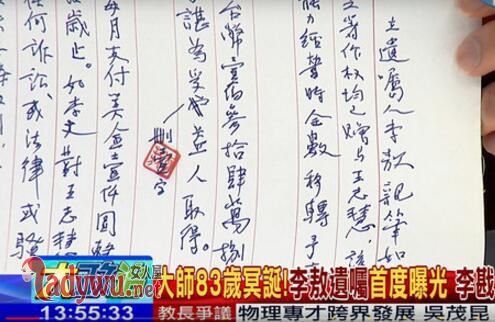 立遺囑人李敖親筆如
等作权均已贈与王志慧,該
能力經營時全數移轉予
台幣壹佰參拾肆萬捌
為受益人取得。
刪壹字
每月支付美金壹仟圓
歲止。如李文對王志慧
任何訴訟或法律或騷
大師83歲冥誕!李敖遺囑首度曝光 李戡
13:55:33 教長爭議 物理專才跨界發展 吳茂昆
Ladywu.com